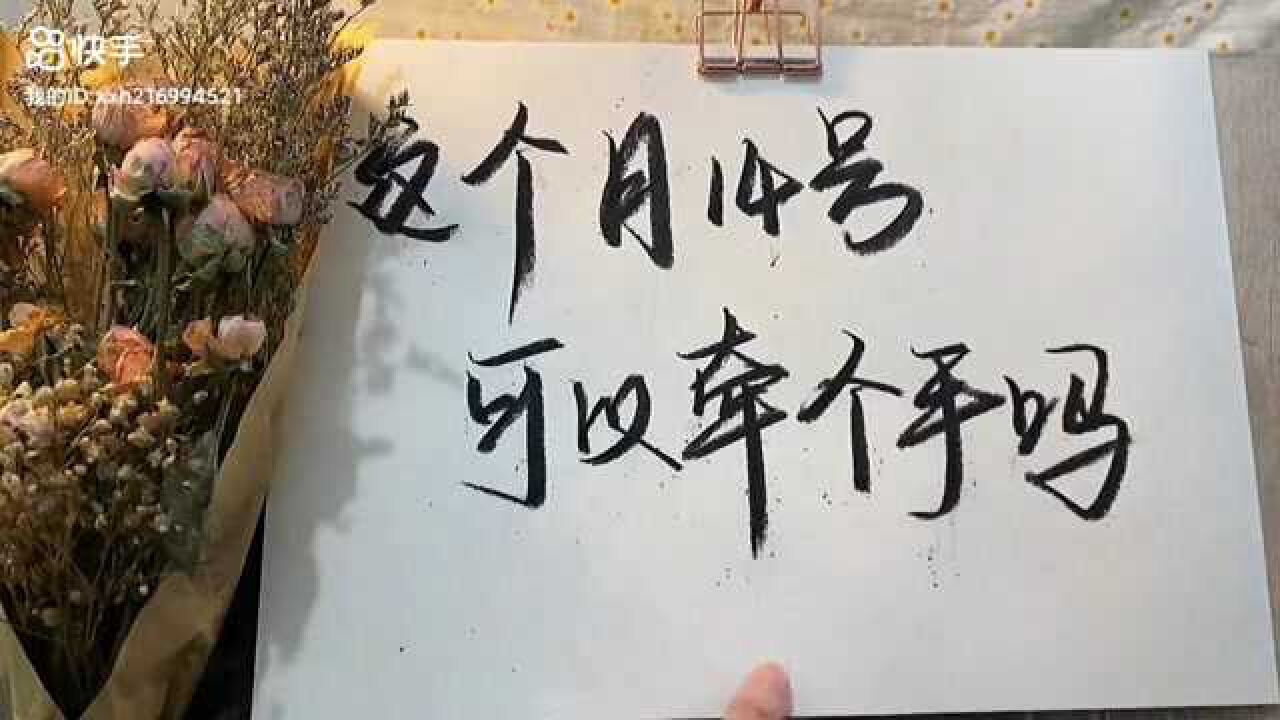 快手
我的ID:xxh216994521
这个月14号
可以牵个手吗